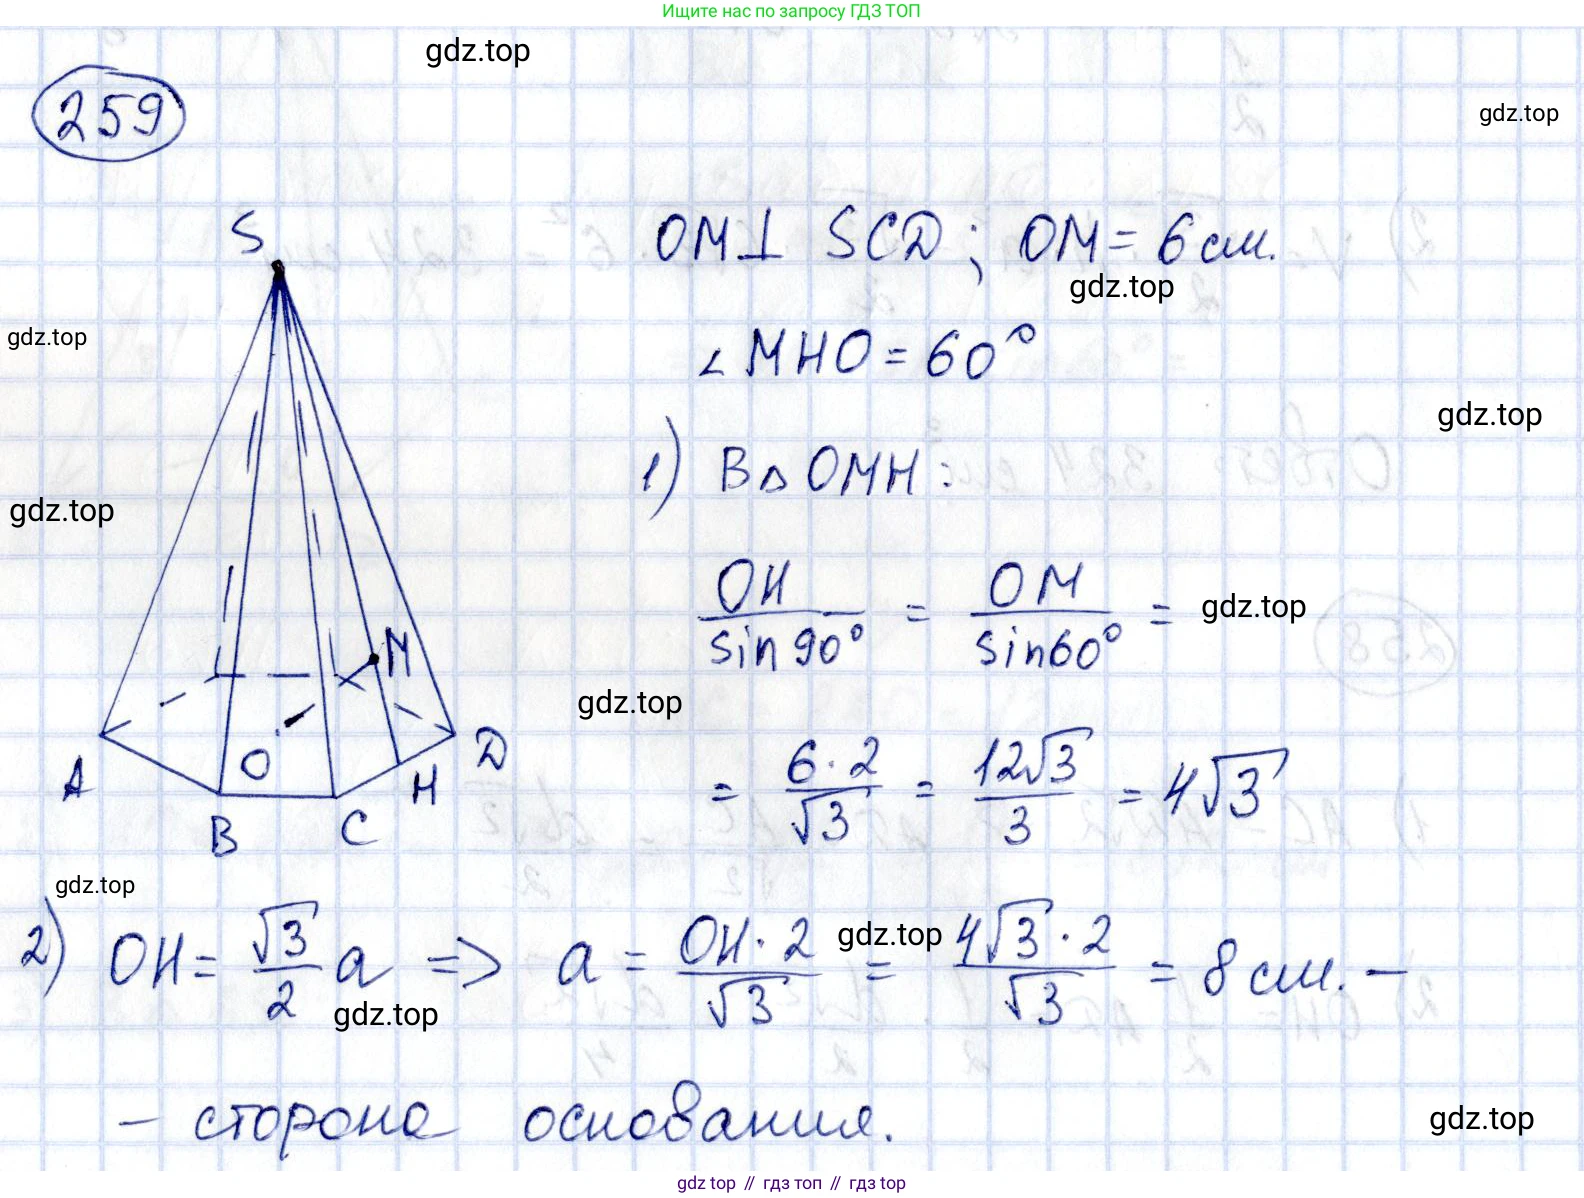 Ищите нас по запросу ГДЗ ТОП
gdz.top
259
gdz.top
S
OM⊥ SCD; OM = 6 см.
gdz.top
gdz.top
∠MHO = 60°
gdz.top
1) В △ OMH:
gdz.top
OH/sin90° = OM/sin60° =
gdz.top
M
gdz.top
= 6·2/√3 = 12√3/3 = 4√3
A
O
D
H
B
C
gdz.top
2) OH = √3/2 a => a = OH·2/√3 = 4√3·2/√3 = 8 см. –
gdz.top
gdz.top
– сторона основания.
gdz.top
gdz top // гдз топ // гдз top